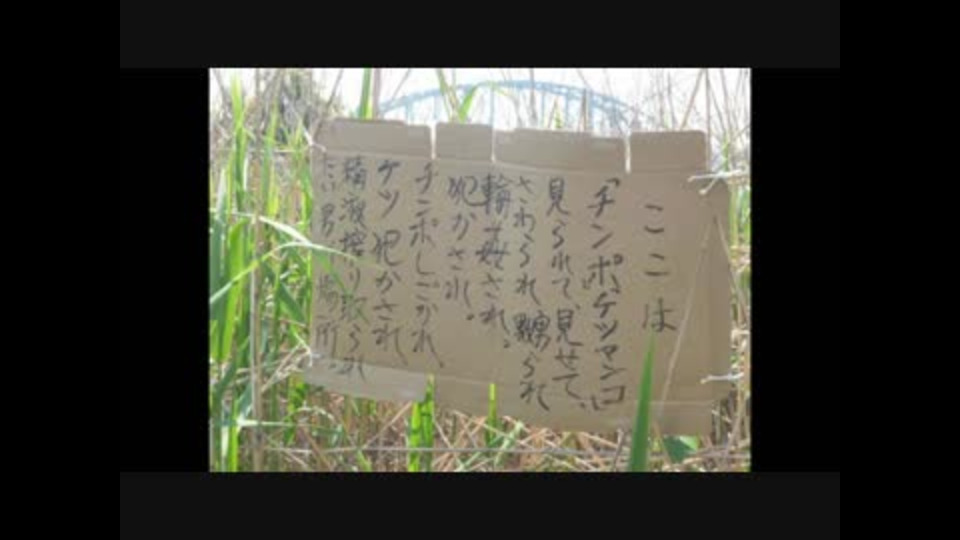 ここは
「チンポ、ケツマンコ
見られて、見せて、
さわられ、嬲られ
輪姦され。
犯かされ。
チンポしごかれ、
ケツ犯かされ、
精液搾り取られ
たい男の場所。